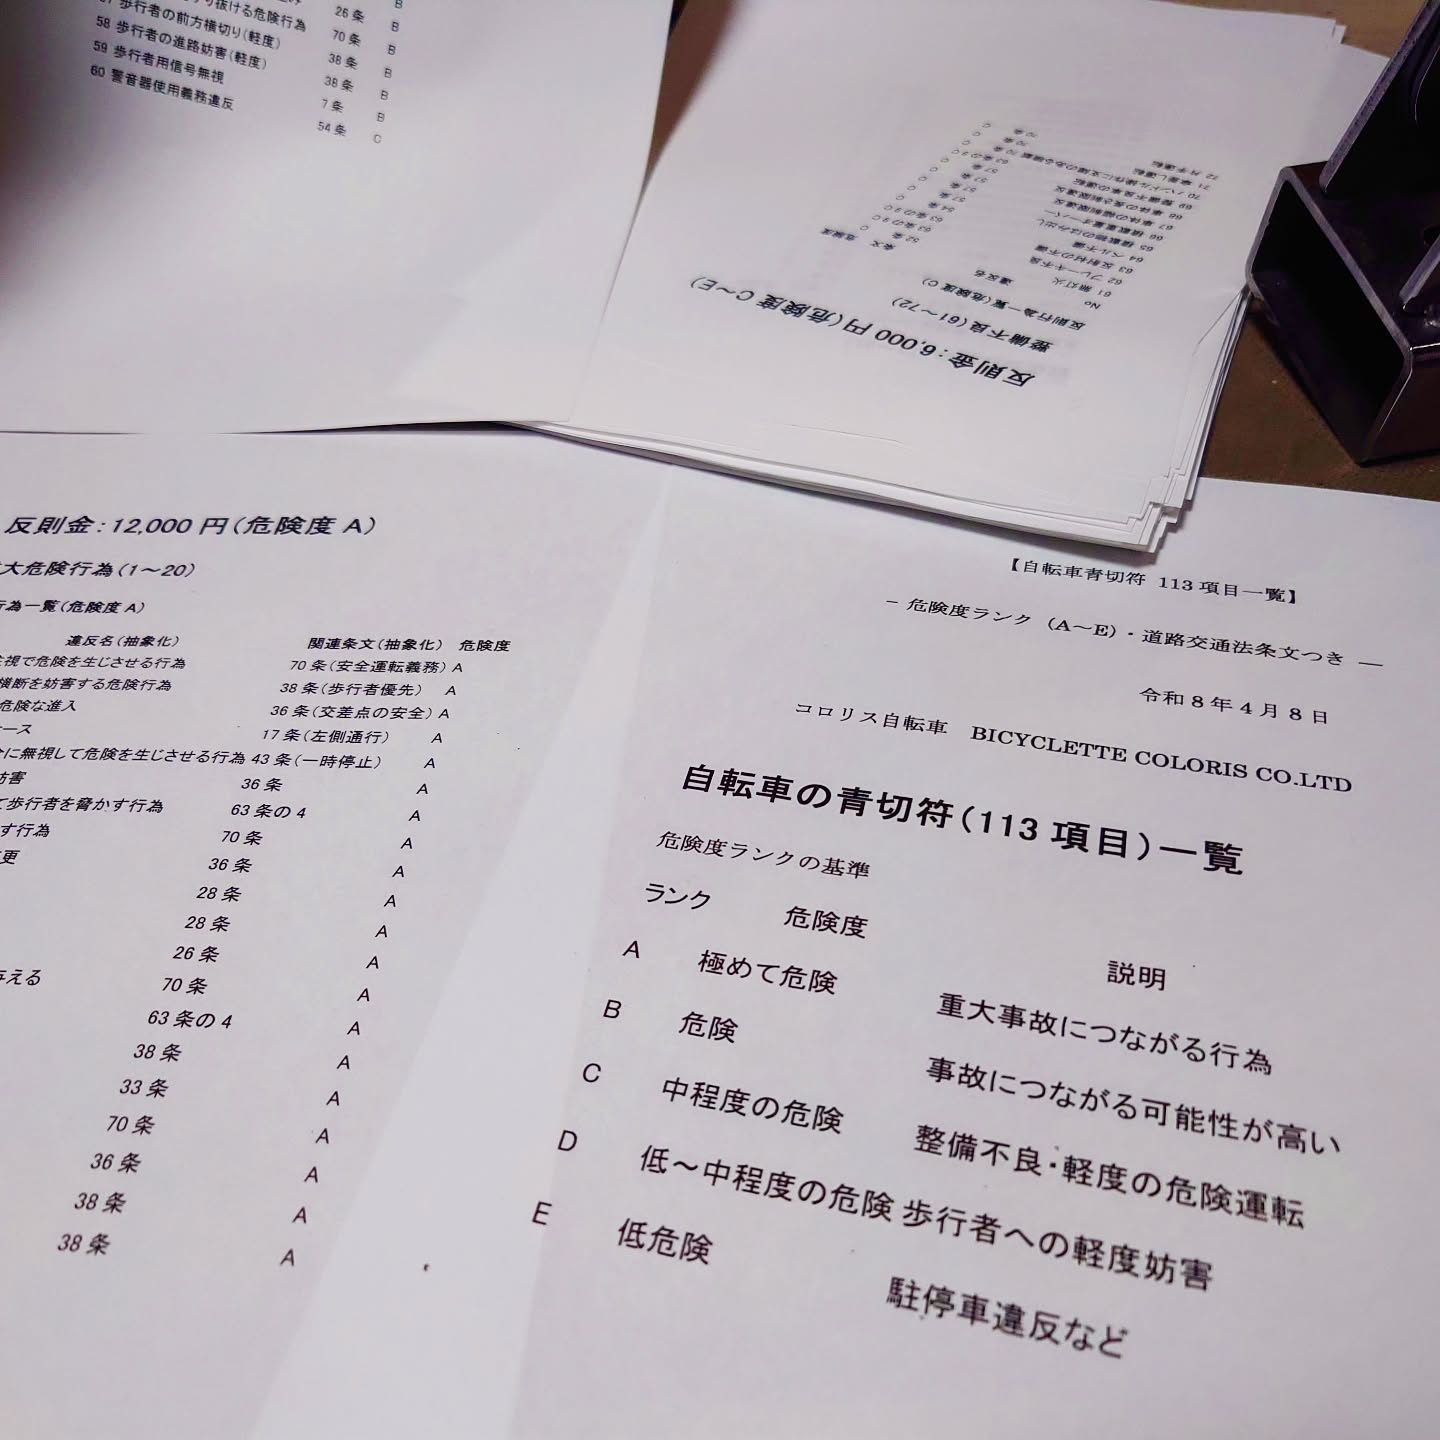 26条 B
り抜ける危険行為 70条 B
歩行者の前方横切り(軽度) 38条 B
58 歩行者の進路妨害(軽度) 38条 B
59 歩行者用信号無視 7条 B
60 警音器使用義務違反 54条 C
反則金:6,000円(危険度 C～E)
整備不良(61～72)
反則行為一覧(危険度 C)
No 違反名 条文 危険度
61 無灯火 52条 C
62 ブレーキ不良 63条の9 C
63 反射材の不備
64 ベル不備 54条 C
反則金:12,000円(危険度 A)
大危険行為(1～20)
行為一覧(危険度 A)
違反名(抽象化) 関連条文(抽象化) 危険度
視で危険を生じさせる行為 70条(安全運転義務) A
横断を妨害する危険行為 38条(歩行者優先) A
危険な進入 36条(交差点の安全) A
ース 17条(左側通行) A
に無視して危険を生じさせる行為 43条(一時停止) A
妨害 36条 A
て歩行者を脅かす行為 63条の4 A
す行為 70条 A
更 36条 A
28条 A
28条 A
26条 A
与える 70条 A
63条の4 A
38条 A
33条 A
70条 A
36条 A
38条 A
38条 A
【自転車青切符 113項目一覧】
– 危険度ランク (A～E)・道路交通法条文つき —
令和8年4月8日
コロリス自転車 BICYCLETTE COLORIS CO.LTD
自転車の青切符(113項目)一覧
危険度ランクの基準
ランク 危険度 説明
A 極めて危険 重大事故につながる行為
B 危険 事故につながる可能性が高い
C 中程度の危険 整備不良・軽度の危険運転
D 低～中程度の危険 歩行者への軽度妨害
E 低危険 駐停車違反など